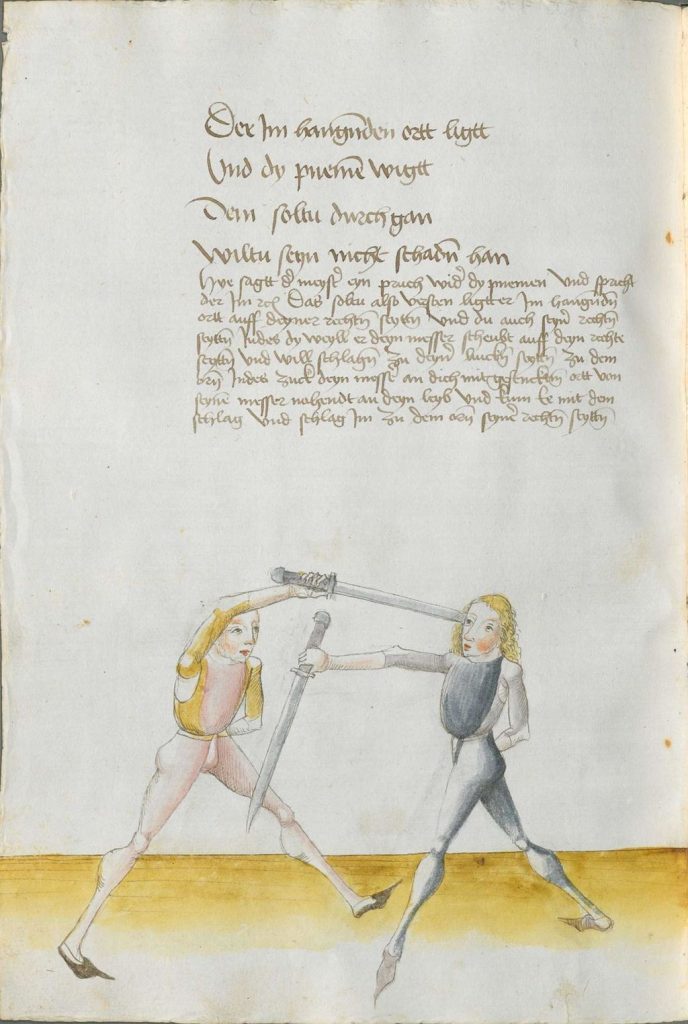 Der Im hangñden ortt ligtt
Und dy pnemẽ wigtt
Dem soltu durchgan
wiltu seyn nicht schadñ han
Hye sagtt dʾ meystʾ eyn pruch widʾ dy pnemen und spricht
der Im rc̃ Das soltu also versten ligtt er Im hangñdñ
ortt auff deyner rechtñ seyttñ und du auch seynʾ rechtñ
seyttñ Indes dy weyll er deyn messer scheubt auff deyn rechte
seyttñ und will schlahñ zu deynʾ linckñ seyttñ zu dem
orñ Indes zuck deyn messer an dich mit gestracktem ortt von
seynẽ messer nohendt an deyn leyb und kum Im mit dem
schlag und schlag Im zu dem orñ seynʾ rechtñ seyttñ